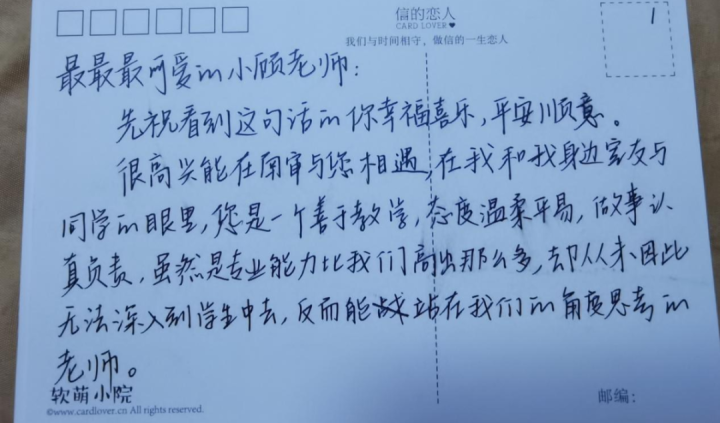 信的恋人
CARD LOVER
我们与时间相守，做信的一生恋人
1
最最最可爱的小顾老师：
先祝看到这句话的你幸福喜乐，平安顺意。
很高兴能在南审与您相遇，在我和我身边室友与
同学的眼里，您是一个善于教学，态度温柔平易，做事认
真负责，虽然是专业能力比我们高出那么多，却从未因此
无法深入到学生中去，反而能站在我们的角度思考的
老师。
软萌小院
©www.cardlover.cn All rights reserved.
邮编：